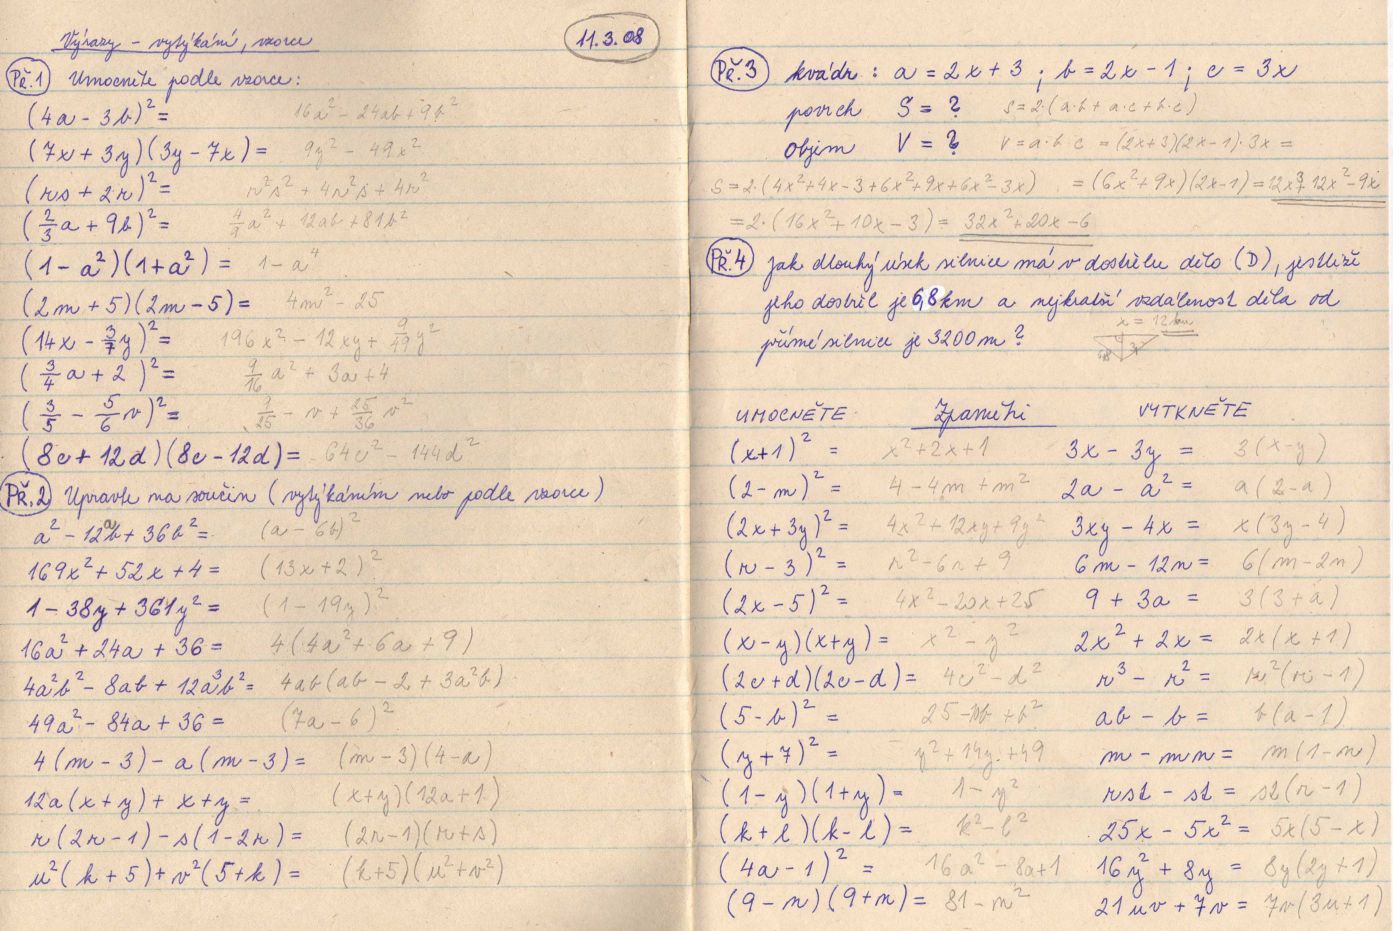 Výrazy – vytýkání, vzorce
11.3.08
Př.1 Umocněte podle vzorce:
(4a - 3b)² = 16a² - 24ab + 9b²
(7x + 3y)(3y - 7x) = 9y² - 49x²
(rs + 2r)² = r²s² + 4r²s + 4r²
(2/3a + 9b)² = 4/9a² + 12ab + 81b²
(1 - a²)(1 + a²) = 1 - a⁴
(2m + 5)(2m - 5) = 4m² - 25
(14x - 3/7y)² = 196x² - 12xy + 9/49y²
(3/4a + 2)² = 9/16a² + 3a + 4
(3/5 - 5/6v)² = 9/25 - v + 25/36v²
(8c + 12d)(8c - 12d) = 64c² - 144d²
Př.2 Upravte na součin (vytýkáním nebo podle vzorce)
a² - 12ab + 36b² = (a - 6b)²
169x² + 52x + 4 = (13x + 2)²
1 - 38y + 361y² = (1 - 19y)²
16a² + 24a + 36 = 4(4a² + 6a + 9)
4a²b² - 8ab + 12a³b² = 4ab(ab - 2 + 3a²b)
49a² - 84a + 36 = (7a - 6)²
4(m - 3) - a(m - 3) = (m - 3)(4 - a)
12a(x + y) + x + y = (x + y)(12a + 1)
r(2r - 1) - s(1 - 2r) = (2r - 1)(r + s)
u²(k + 5) + v²(5 + k) = (k + 5)(u² + v²)
Př.3 kvádr: a = 2x + 3; b = 2x - 1; c = 3x
povrch S = ? S = 2·(a·b + a·c + b·c)
objem V = ? V = a·b·c = (2x+3)(2x-1)·3x =
S = 2·(4x² + 4x - 3 + 6x² + 9x + 6x² - 3x) = (6x² + 9x)(2x - 1) = 12x³ + 12x² - 9x
= 2·(16x² + 10x - 3) = 32x² + 20x - 6
Př.4 Jak dlouhý úsek silnice má v dostřelu dělo (D), jestliže
jeho dostřel je 6,8km a nejkratší vzdálenost děla od
přímé silnice je 3200m?
x = 12km
UMOCNĚTE Zpaměti VYTKNĚTE
(x+1)² = x² + 2x + 1 3x - 3y = 3(x-y)
(2 - m)² = 4 - 4m + m² 2a - a² = a(2-a)
(2x + 3y)² = 4x² + 12xy + 9y² 3xy - 4x = x(3y - 4)
(r - 3)² = r² - 6r + 9 6m - 12n = 6(m - 2n)
(2x - 5)² = 4x² - 20x + 25 9 + 3a = 3(3 + a)
(x - y)(x + y) = x² - y² 2x² + 2x = 2x(x + 1)
(2c + d)(2c - d) = 4c² - d² r³ - r² = r²(r - 1)
(5 - b)² = 25 - 10b + b² ab - b = b(a - 1)
(y + 7)² = y² + 14y + 49 m - mn = m(1 - n)
(1 - y)(1 + y) = 1 - y² rst - st = st(r - 1)
(k + l)(k - l) = k² - l² 25x - 5x² = 5x(5 - x)
(4a - 1)² = 16a² - 8a + 1 16y² + 8y = 8y(2y + 1)
(9 - n)(9 + n) = 81 - n² 21uv + 7v = 7v(3u + 1)